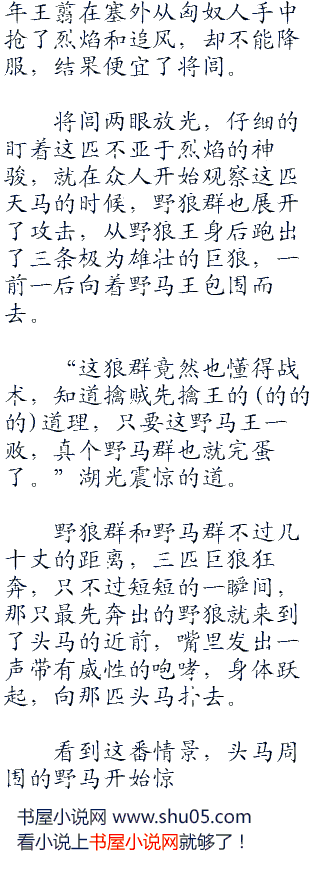 年王翦在塞外从匈奴人手中
抢了烈焰和追风，却不能降
服，结果便宜了将闾。
将闾两眼放光，仔细的
盯着这匹不亚于烈焰的神
骏，就在众人开始观察这匹
天马的时候，野狼群也展开
了攻击，从野狼王身后跑出
了三条极为雄壮的巨狼，一
前一后向着野马王包围而
去。
“这狼群竟然也懂得战
术，知道擒贼先擒王的(的的
的)道理，只要这野马王一
败，真个野马群也就完蛋
了。”湖光震惊的道。
野狼群和野马群不过几
十丈的距离，三匹巨狼狂
奔，只不过短短的一瞬间，
那只最先奔出的野狼就来到
了头马的近前，嘴里发出一
声带有威性的咆哮，身体跃
起，向那匹头马扑去。
看到这番情景，头马周
围的野马开始惊
书屋小说网 www.shu05.com
看小说上书屋小说网就够了！